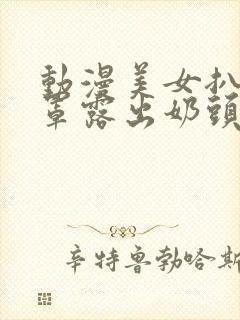 動漫美女扒
罩露出奶頭
辛特鲁勃哈斯